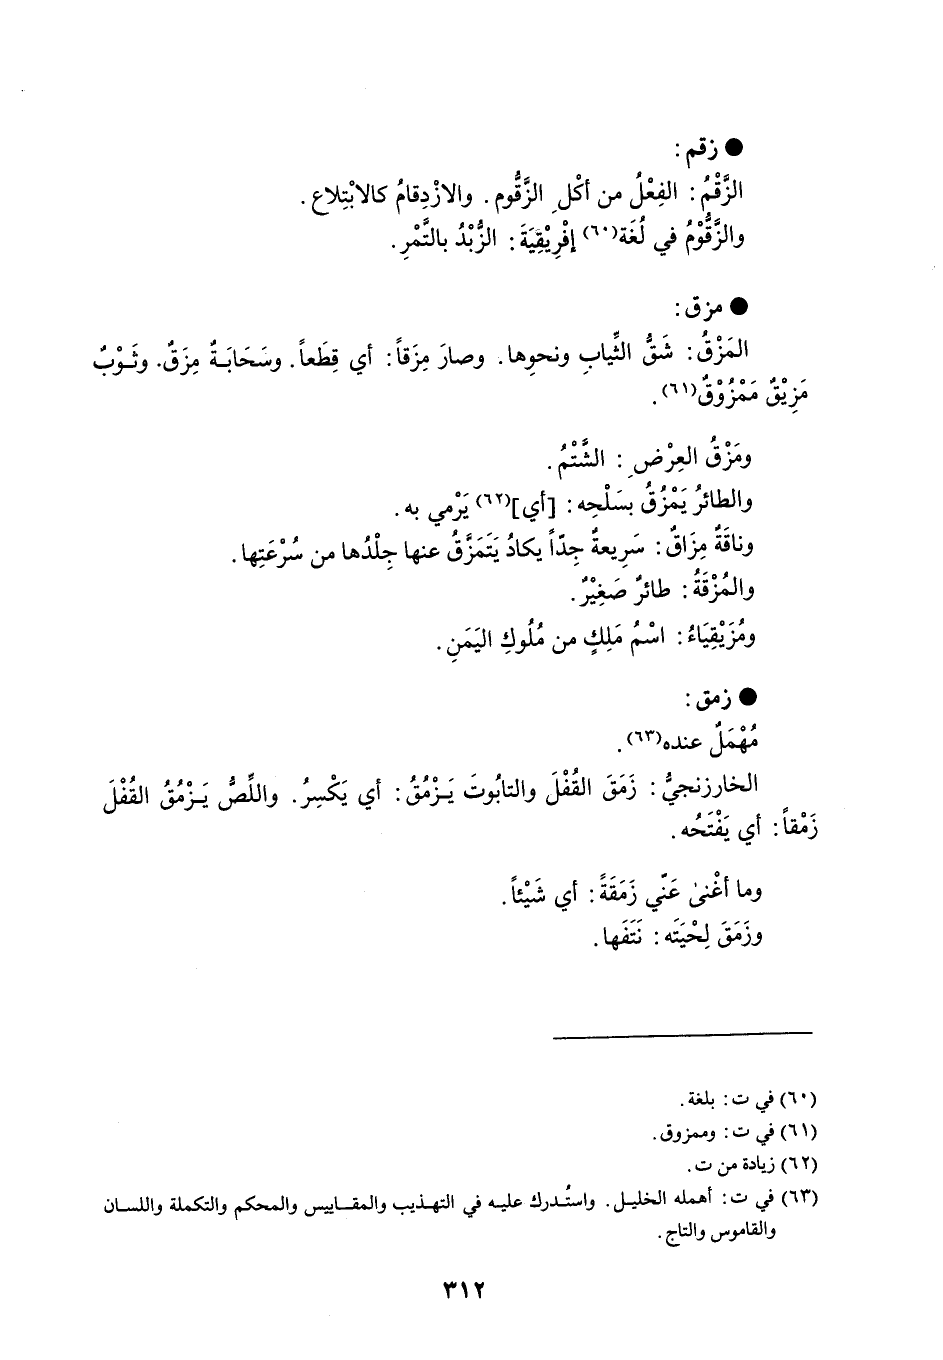 ● زقم :
الزَّقْمُ : الفِعْلُ من أكْلِ الزَّقُّوم . والازْدِقامُ كالابْتِلاع .
والزَّقُّوْمُ في لُغَة(٦٠) إفْرِيْقِيَةَ : الزُّبْدُ بالتَّمْرِ .
● مزق :
المَزْقُ : شَقُّ الثِّيابِ ونحوِها . وصارَ مِزَقاً : أي قِطَعاً . وسَحَابَةٌ مِزَقٌ . وثَوْبٌ
مَزِيْقٌ مَمْزُوْقٌ(٦١) .
ومَزْقُ العِرْضِ : الشَّتْمُ .
والطائرُ يَمْزُقُ بسَلْحِه : [أي](٦٢) يَرْمي به .
وناقَةٌ مِزَاقٌ : سَرِيعةٌ جِدّاً يكادُ يَتَمَزَّقُ عنها جِلْدُها من سُرْعَتِها .
والمُزْقَةُ : طائرٌ صَغِيْرٌ .
ومُزَيْقِيَاءُ : اسْمُ مَلِكٍ من مُلُوكِ اليَمَنِ .
● زمق :
مُهْمَلٌ عنده(٦٣) .
الخارزنجيُّ : زَمَقَ القُفْلَ والتابُوتَ يَزْمُقُ : أي يَكْسِرُ . واللِّصُّ يَزْمُقُ القُفْلَ
زَمْقاً : أي يَفْتَحُه .
وما أغْنىٰ عَنّي زَمَقَةً : أي شَيْئاً .
وزَمَقَ لِحْيَتَه : نَتَفَها .
(٦٠) في ت : بلغة .
(٦١) في ت : وممزوق .
(٦٢) زيادة من ت .
(٦٣) في ت : أهمله الخليل . واستُدرك عليه في التهذيب والمقاييس والمحكم والتكملة واللسان
والقاموس والتاج .
٣١٢